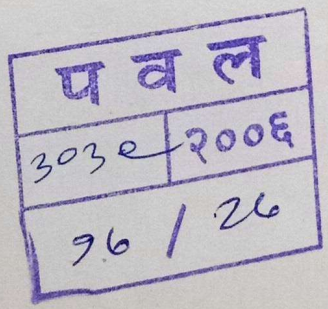 प व ल
३०३९ २००६
१७ / २७